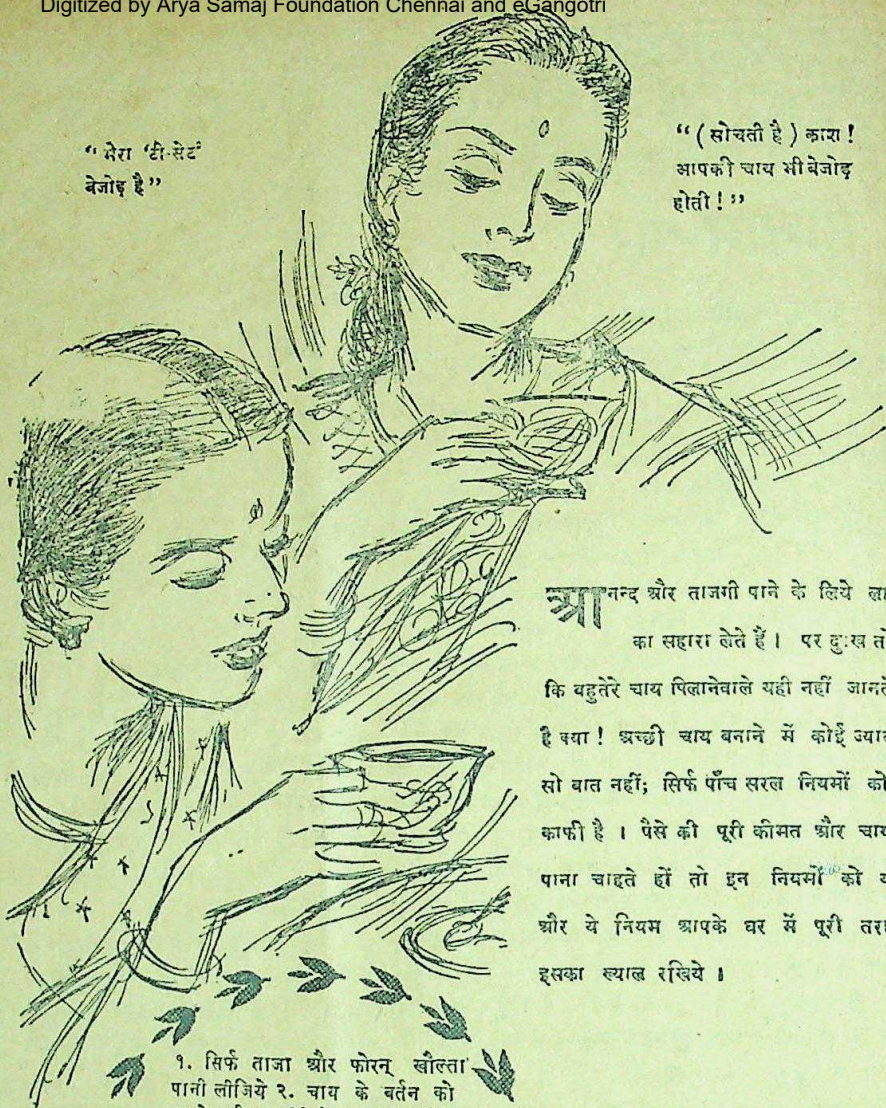 Digitized by Arya Samaj Foundation Chennai and eGangotri
“ मेरा ‘टी-सेट’
बेजोड़ है ”
“ ( सोचती है ) काश !
आपकी चाय भी बेजोड़
होती ! ”
आनन्द और ताजगी पाने के लिये
का सहारा लेते हैं । पर दुःख
कि बहुतेरे चाय पिलानेवाले यही नहीं जानते
है क्या ! अच्छी चाय बनाने में कोई
सो बात नहीं; सिर्फ पाँच सरल नियमों को
काफी है । पैसे की पूरी कीमत और चाय
पाना चाहते हों तो इन नियमों को
और ये नियम आपके घर में पूरी
इसका ख्याल रखिये ।
१. सिर्फ ताजा और फोरन् खौल्ता
पानी लीजिये २. चाय के बर्तन को